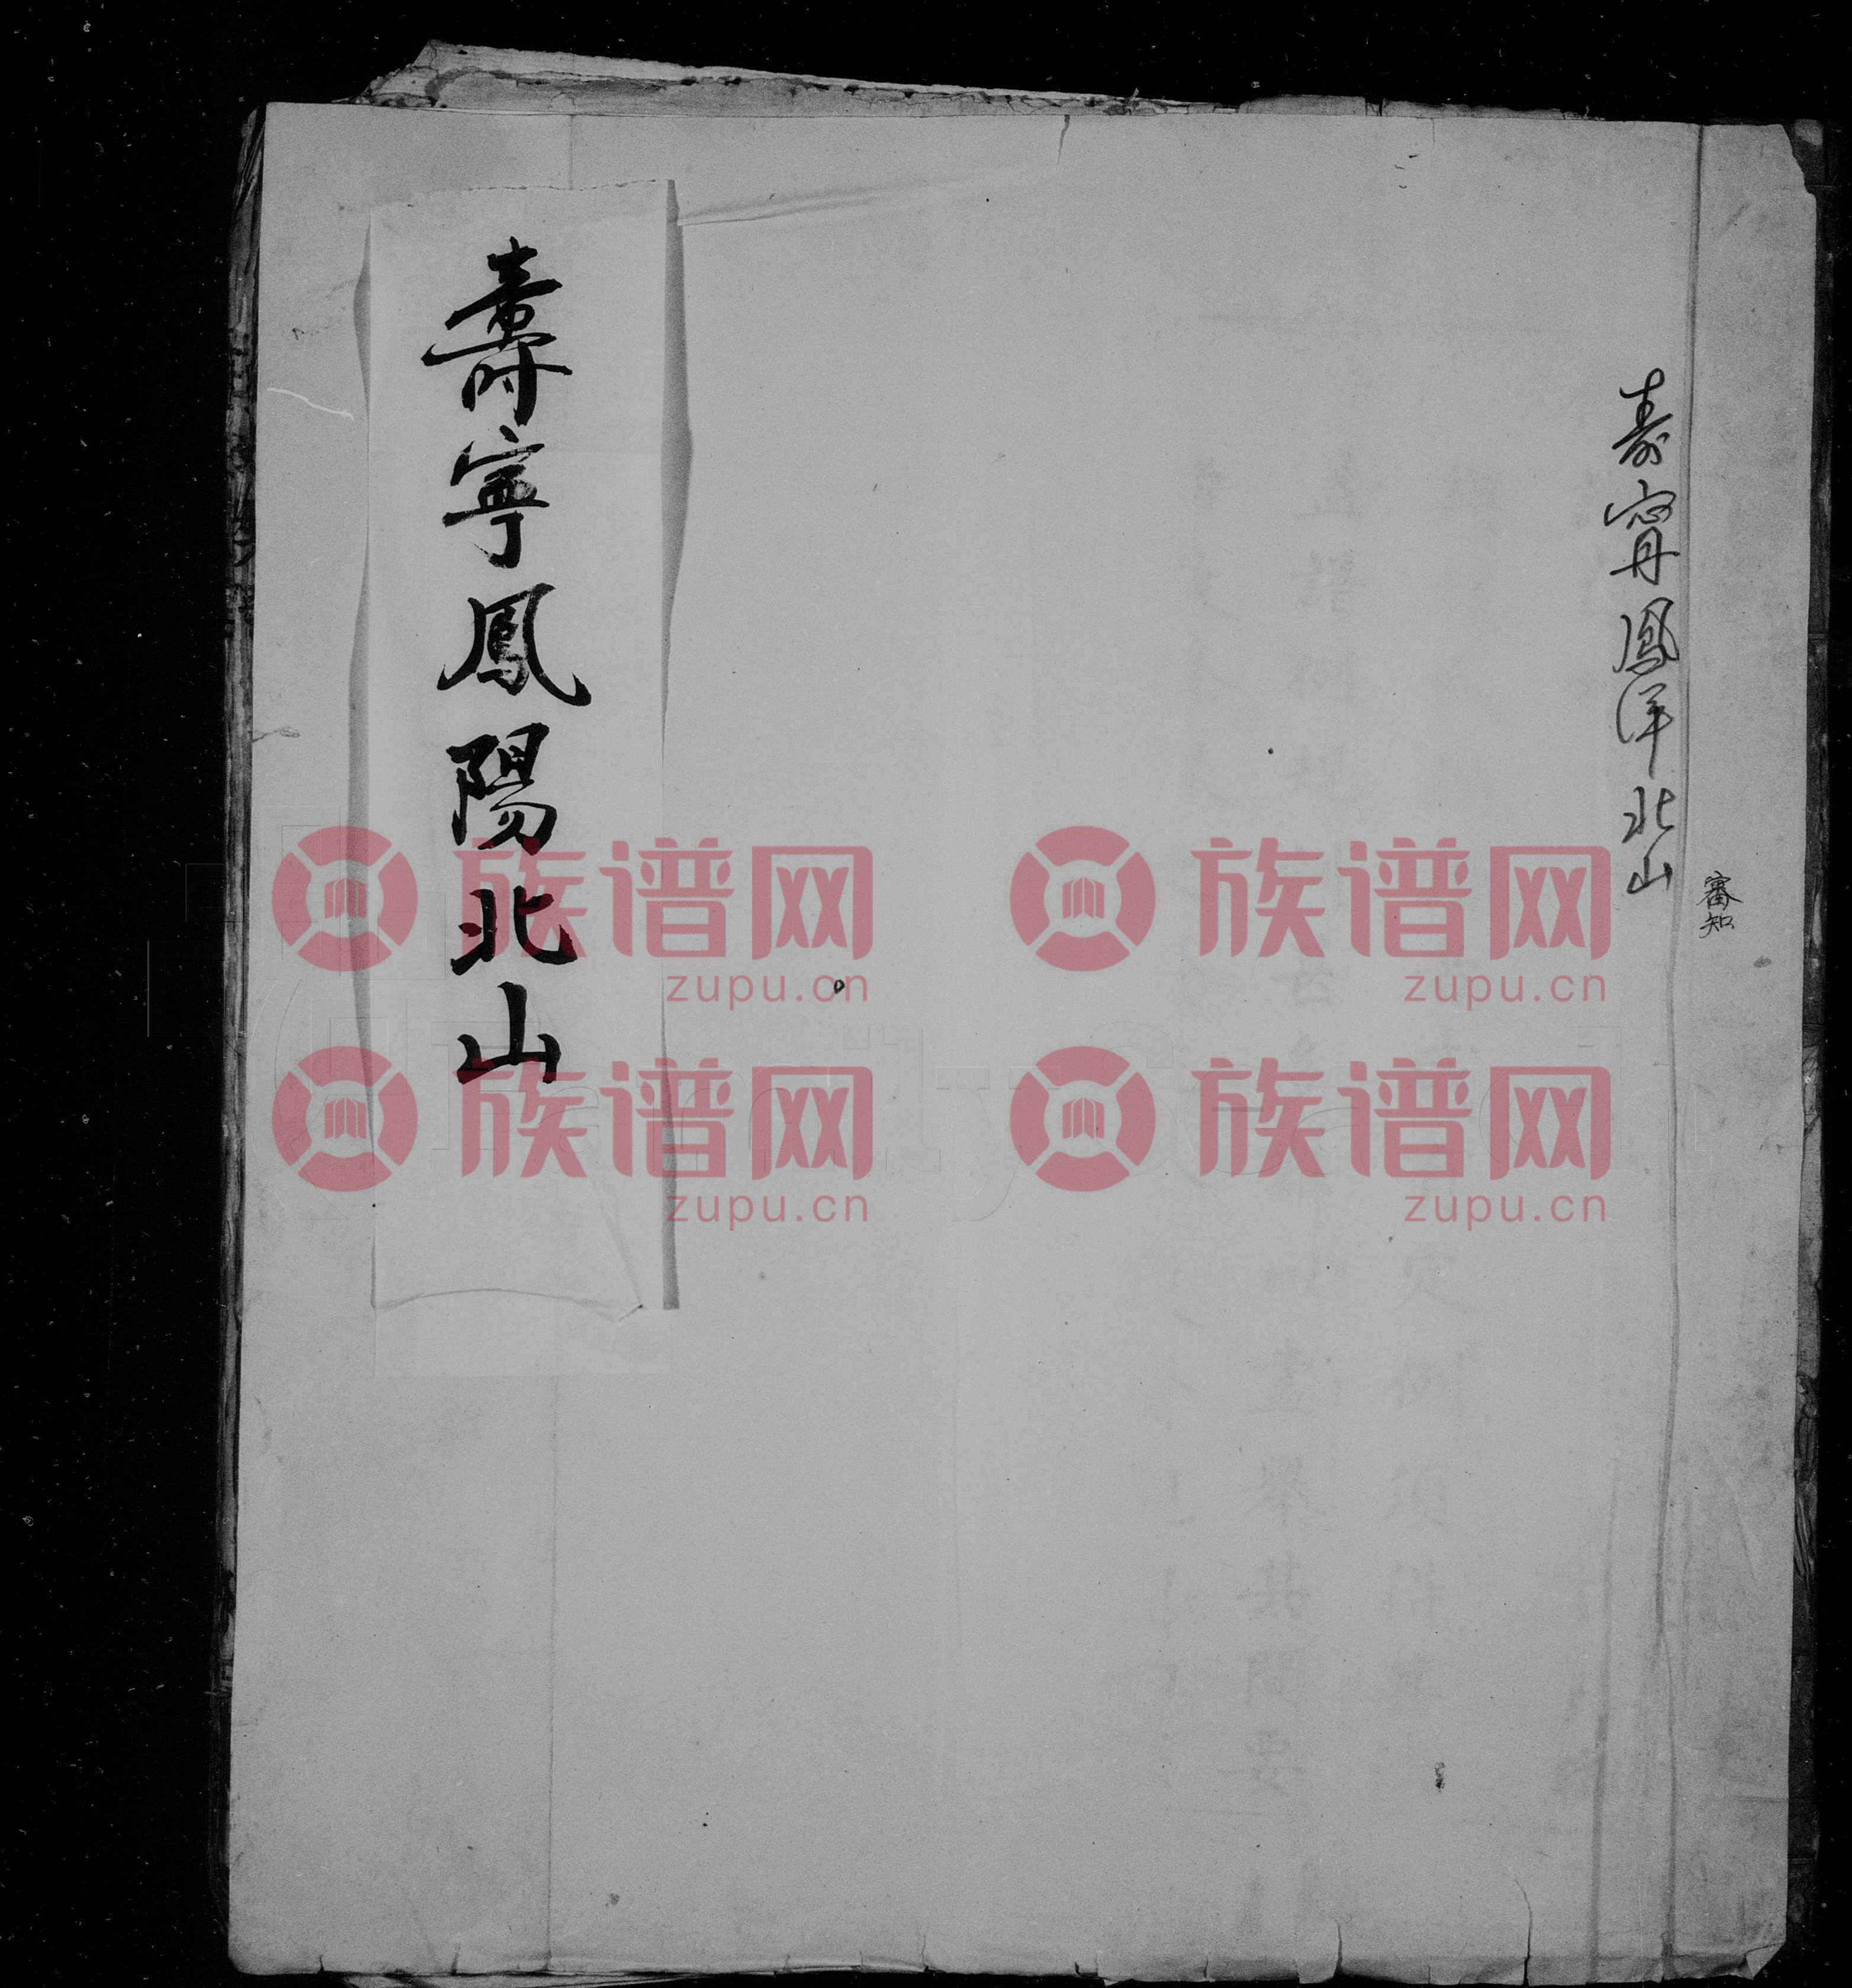 審知
寿寧鳳洋北山
壽寧鳳陽北山
族谱网 族谱网
zupu.cn zupu.cn
族谱网 族谱网
zupu.cn zupu.cn